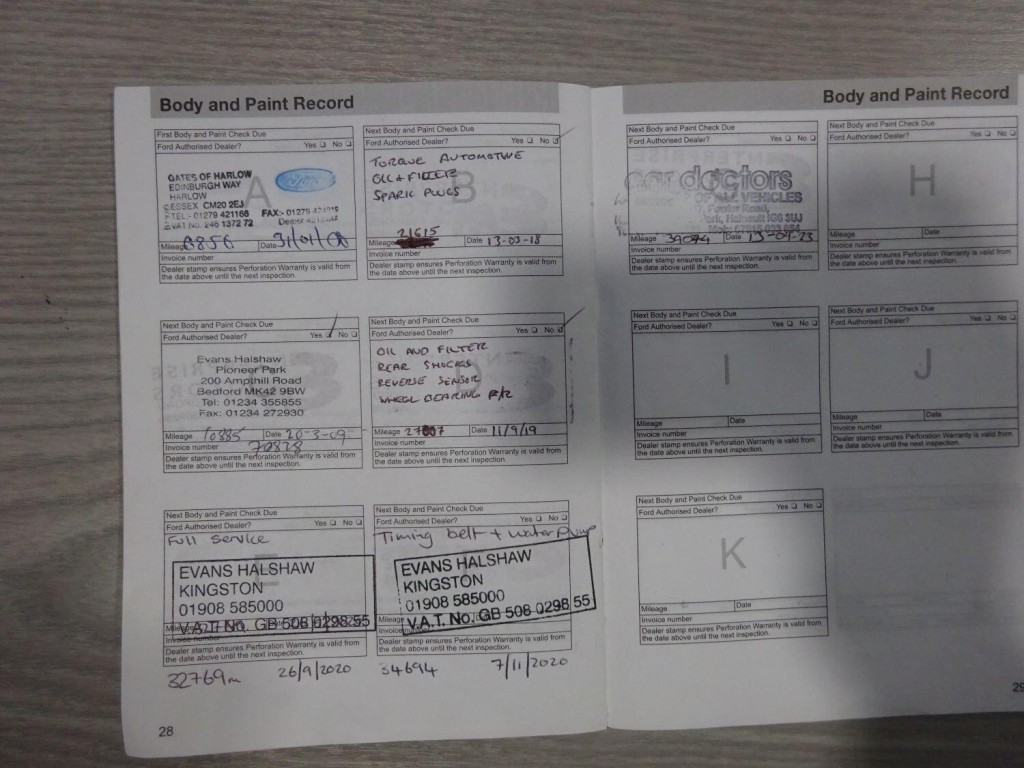 Body and Paint Record
First Body and Paint Check Due
Ford Authorised Dealer? Yes No
A
GATES OF HARLOW
EDINBURGH WAY
HARLOW
ESSEX CM20 2EJ
TEL:- 01279 421166 FAX:- 01279
VAT No. 246 1372 72
Ford
Mileage Date
Invoice number
Dealer stamp ensures Perforation Warranty is valid from
the date above until the next inspection.
Next Body and Paint Check Due
Ford Authorised Dealer? Yes No
B
TORQUE AUTOMOTIVE
OIL + FILTER
SPARK PLUGS
21615
Mileage Date 13-03-18
Invoice number
Dealer stamp ensures Perforation Warranty is valid from
the date above until the next inspection.
Next Body and Paint Check Due
Ford Authorised Dealer? Yes No
Evans Halshaw
Pioneer Park
200 Ampthill Road
Bedford MK42 9BW
Tel: 01234 355855
Fax: 01234 272930
Mileage 10885 Date 20-3-09
Invoice number 70828
Dealer stamp ensures Perforation Warranty is valid from
the date above until the next inspection.
Next Body and Paint Check Due
Ford Authorised Dealer? Yes No
OIL AND FILTER
REAR SHOCKS
REVERSE SENSOR
WHEEL BEARING R/R
Mileage 27007 Date 11/9/19
Invoice number
Dealer stamp ensures Perforation Warranty is valid from
the date above until the next inspection.
Next Body and Paint Check Due
Ford Authorised Dealer? Yes No
Full service
E
EVANS HALSHAW
KINGSTON
01908 585000
V.A.T. No. GB 508 0298 55
Invoice number
Dealer stamp ensures Perforation Warranty is valid from
the date above until the next inspection.
32769m 26/9/2020
Next Body and Paint Check Due
Ford Authorised Dealer? Yes No
Timing belt + water pump
EVANS HALSHAW
KINGSTON
01908 585000
V.A.T. No. GB 508 0298 55
Invoice number
Dealer stamp ensures Perforation Warranty is valid from
the date above until the next inspection.
34694 7/11/2020
28
Body and Paint Record
Next Body and Paint Check Due
Ford Authorised Dealer? Yes No
car doctors
OF ALL VEHICLES
Fowler Road,
Park, Hainault IG6 3UJ
Mileage 39074 Date
Invoice number
Dealer stamp ensures Perforation Warranty is valid from
the date above until the next inspection.
Next Body and Paint Check Due
Ford Authorised Dealer? Yes No
H
Mileage Date
Invoice number
Dealer stamp ensures Perforation Warranty is valid from
the date above until the next inspection.
Next Body and Paint Check Due
Ford Authorised Dealer? Yes No
I
Mileage Date
Invoice number
Dealer stamp ensures Perforation Warranty is valid from
the date above until the next inspection.
Next Body and Paint Check Due
Ford Authorised Dealer? Yes No
J
Mileage Date
Invoice number
Dealer stamp ensures Perforation Warranty is valid from
the date above until the next inspection.
Next Body and Paint Check Due
Ford Authorised Dealer? Yes No
K
Mileage Date
Invoice number
Dealer stamp ensures Perforation Warranty is valid from
the date above until the next inspection.
29